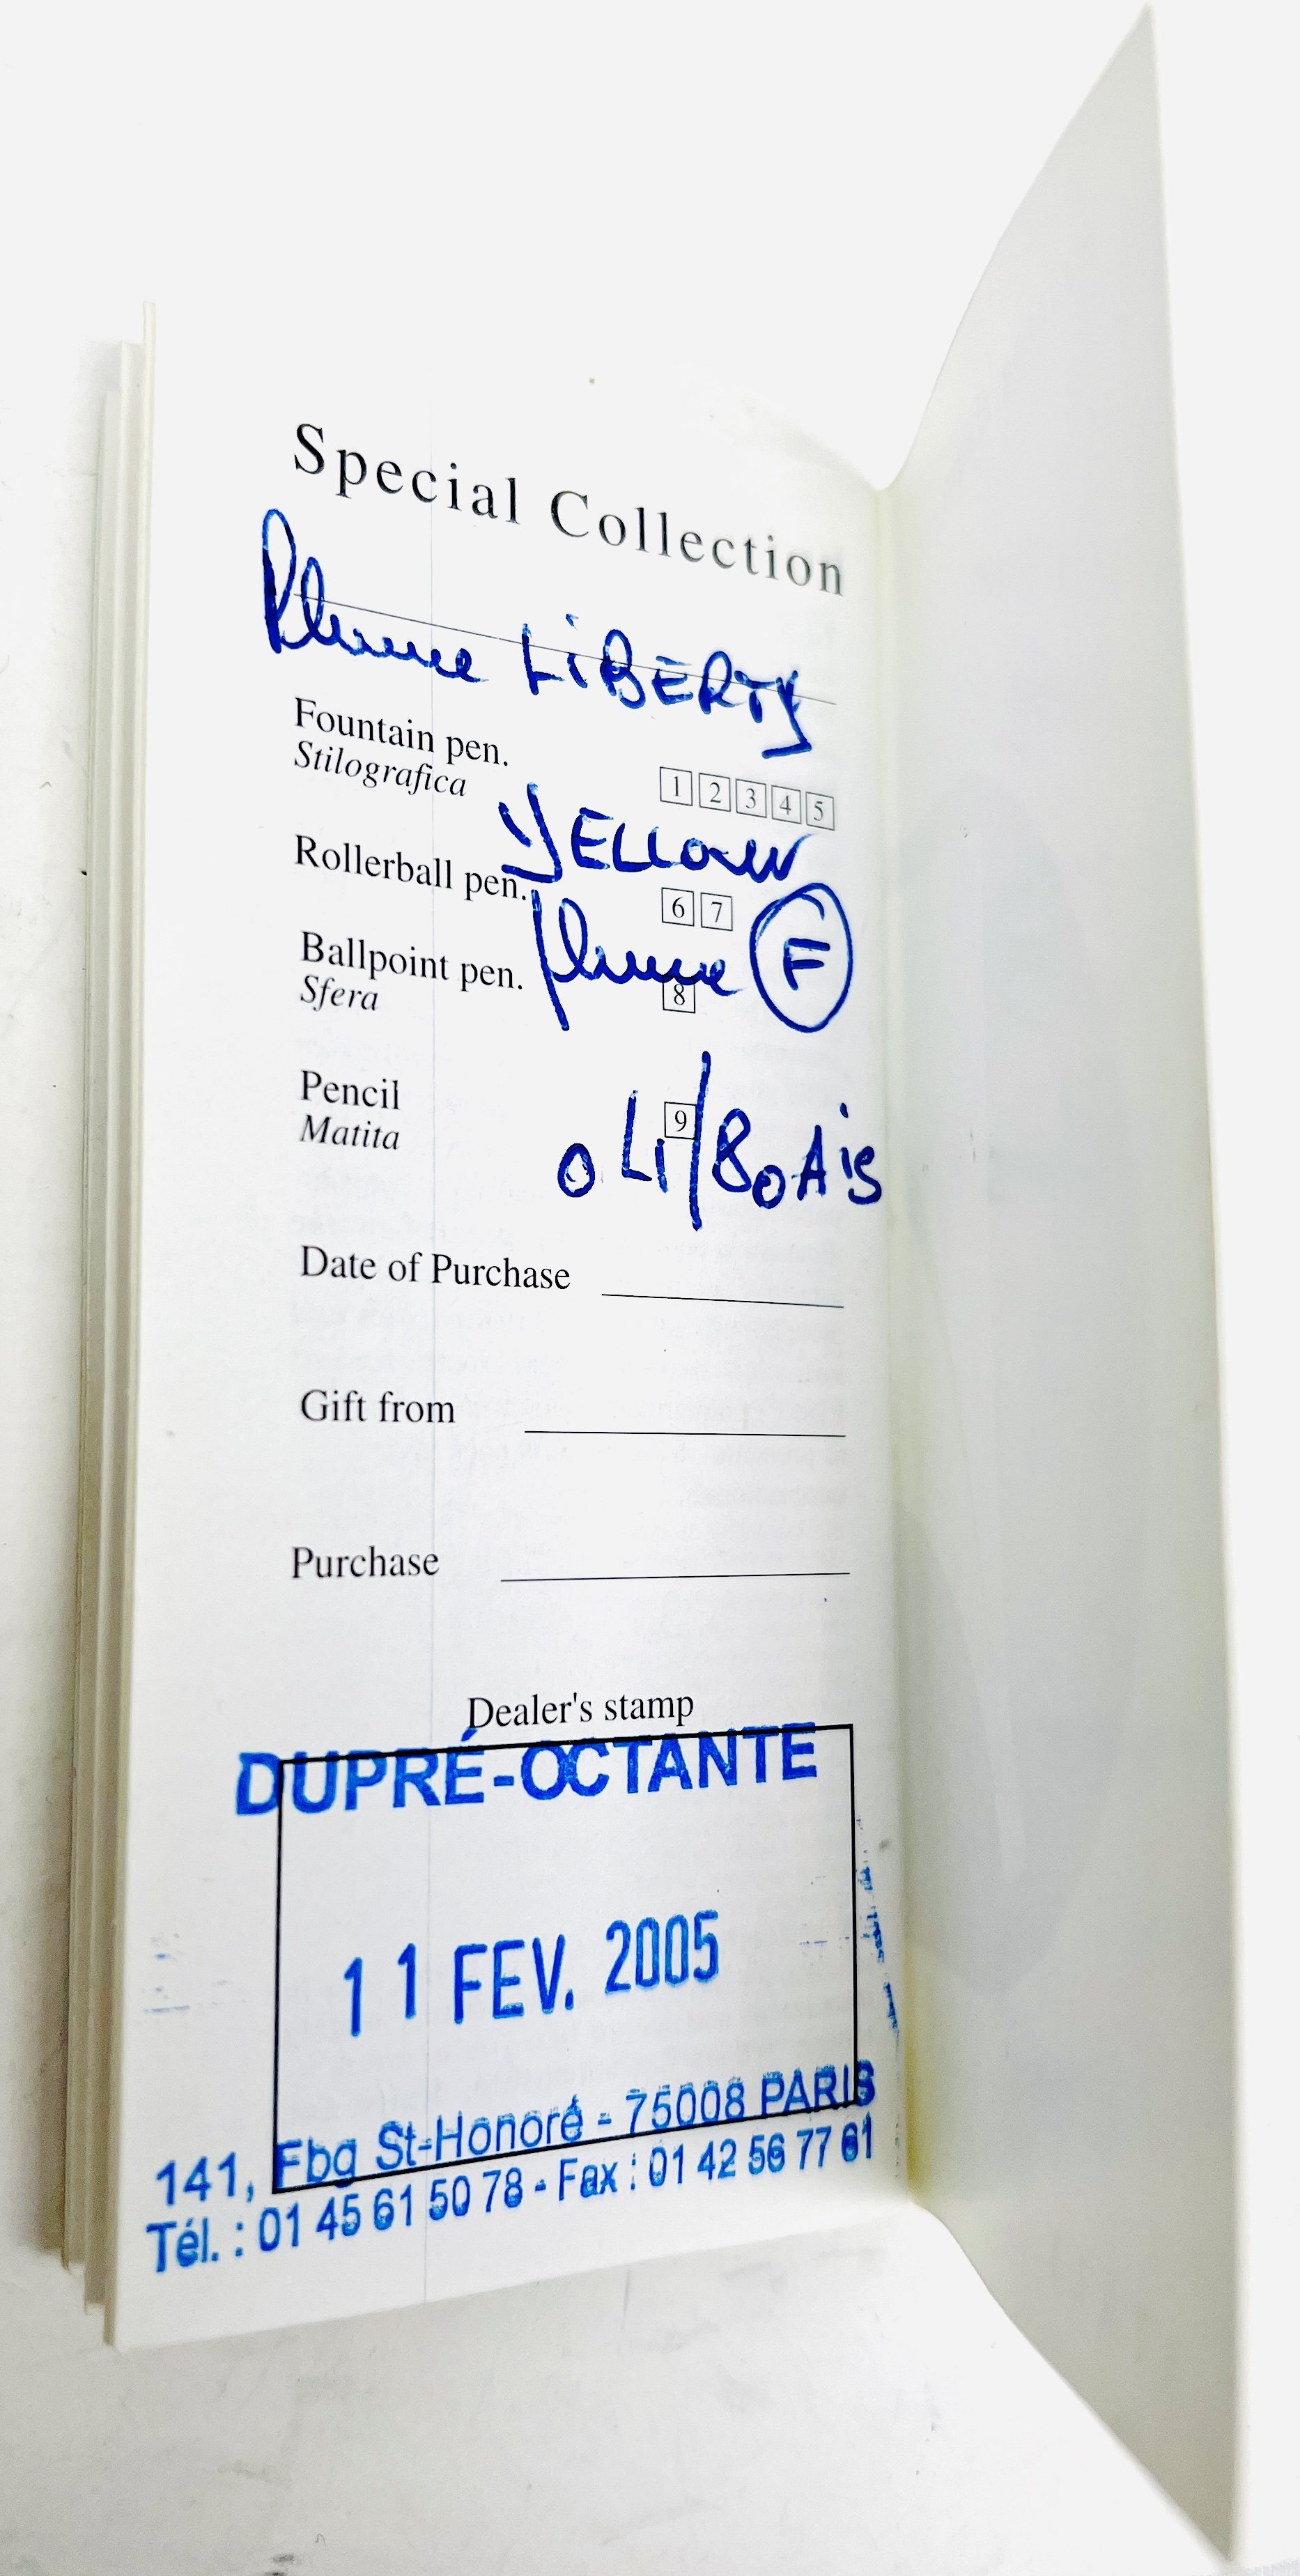 Special Collection
Plume LiBERTy
Fountain pen.
Stilografica
1 2 3 4 5
yELLOW
Rollerball pen.
6 7
plume F
Ballpoint pen.
Sfera
8
Pencil
Matita
9
041/80Ais
Date of Purchase
Gift from
Purchase
Dealer's stamp
DUPRÉ-OCTANTE
11 FEV. 2005
141, Fbg St-Honoré - 75008 PARIS
Tél. : 01 45 61 50 78 - Fax : 01 42 56 77 61